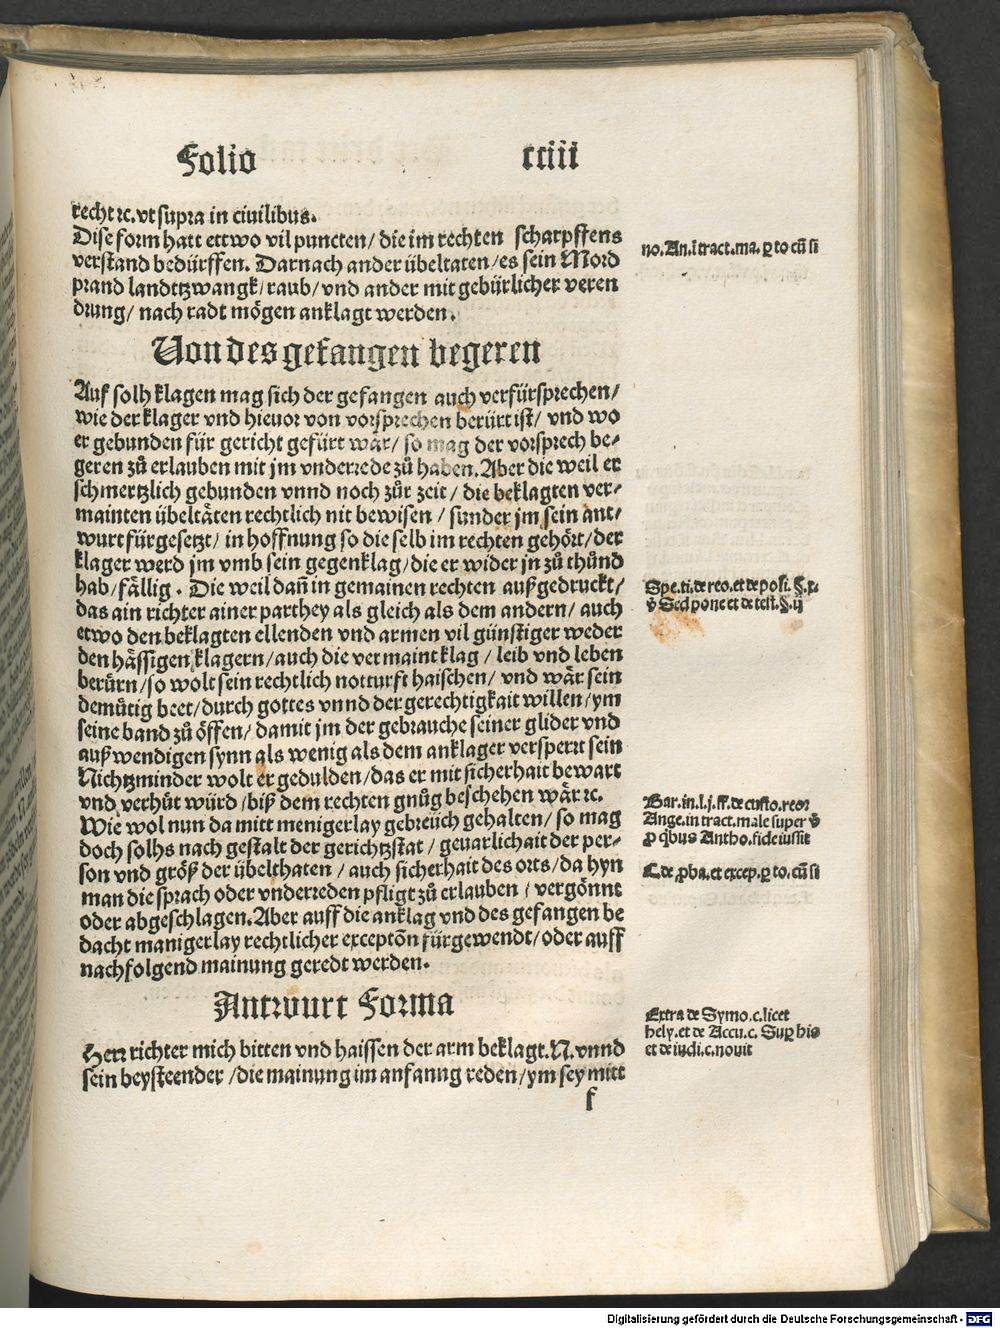 Folio cciii
recht ꝛc. vt supra in ciuilibus.
Dise form hatt ettwo vil puncten/ die im rechten scharpffens
verstand bedürffen. Darnach ander übeltaten/ es sein Mord
prand landtzwangk/ raub/ vnd ander mit gebürlicher veren
drung/ nach radt mögen anklagt werden.
Von des gefangen begeren
Auf solh klagen mag sich der gefangen auch verfürsprechen/
wie der klager vnd hieuor von vorsprechen berürt ist/ vnd wo
er gebunden für gericht gefürt wär/ so mag der vorsprech be-
geren zů erlauben mit jm vnderrede zů haben. Aber die weil er
schmertzlich gebunden vnnd noch zůr zeit/ die beklagten ver-
mainten übeltäten rechtlich nit bewisen/ sunder jm sein ant-
wurt fürgesetzt/ in hoffnung so die selb im rechten gehört/ der
klager werd jm vmb sein gegenklag/ die er wider jn zů thůnd
hab/ fällig. Die weil dañ in gemainen rechten außgedruckt/
das ain richter ainer parthey als gleich als dem andern/ auch
etwo den beklagten ellenden vnd armen vil günstiger weder
den hässigen klagern/ auch die vermaint klag/ leib vnd leben
berürn/ so wolt sein rechtlich notturft haischen/ vnd wär sein
demütig beet/ durch gottes vnnd der gerechtigkait willen/ ym
seine band zů öffen/ damit jm der gebrauche seiner glider vnd
außwendigen synn als wenig als dem anklager versperrt sein
Nichtzminder wolt er gedulden/ das er mit sicherhait bewart
vnd verhüt würd/ biß dem rechten gnůg beschehen wär ꝛc.
Wie wol nun da mitt menigerlay gebreüch gehalten/ so mag
doch solhs nach gestalt der gerichtzstat/ geuarlichait der per-
son vnd größ der übelthaten/ auch sicherhait des orts/ da hyn
man die sprach oder vnderreden pfligt zů erlauben/ vergönnt
oder abgeschlagen. Aber auff die anklag vnd des gefangen be
dacht manigerlay rechtlicher exceptõn fürgewendt/ oder auff
nachfolgend mainung geredt werden.
Antwurt Forma
Herr richter mich bitten vnd haissen der arm beklagt. N. vnnd
sein beysteender/ die mainung im anfanng reden/ ym sey mitt
f
no. An. ī tract. ma. ꝑ to cū si
Spe. ti. de reo. et de posi. §. x.
ꝟ Sed pone et de test. §. ij
Bar. in. l. j. ff. de custo. reor
Ange. in tract. male super ꝟ
ꝑ qbus Antho. fide iussit
C. de ꝓba. et excep. ꝑ to. cū si
Extra de Symo. c. licet
hely. et de Accu. c. Suꝑ his
et de iudi. c. nouit
Digitalisierung gefördert durch die Deutsche Forschungsgemeinschaft - DFG